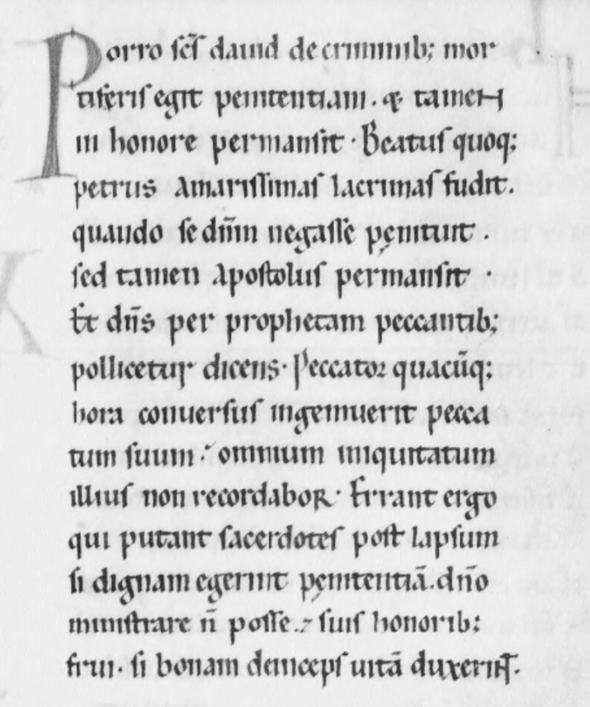 Porro scs̄ dauid decriminib; mor
tiferis egit penitentiam. & tamen
in honore permansit · Beatus quoq;
petrus amarissimas lacrimas fudit.
quando sedn̄m negasse pęnituit .
sed tamen apostolus permansit ·
Et dn̄s per prophetam peccantib;
pollicetur dicens · Peccator quacūq;
hora conuersus ingemuerit pecca
tum suum : omnium iniquitatum
illius non recordabor · Errant ergo
qui putant sacerdotes post lapsum
si dignam egerint pęnitentiā. dn̄o
ministrare n̄ posse. ⁊ suis honorib;
frui. si bonam deinceps uitā duxerint.